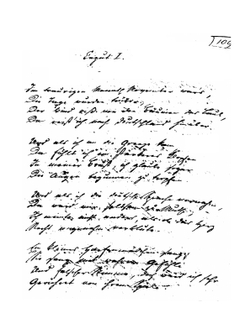 109
Caput I.
Im traurigen Monath November wars,
Die Tage wurden trüber,
Der Wind riß von den Bäumen das Laub,
Da reist ich nach Deutschland hinüber.
Und als ich an die Grenze kam,
Da fühlt ich ein stärkeres Klopfen
In meiner Brust, ich glaube sogar
Die Augen begunnen zu tropfen.
Und als ich die deutsche Sprache vernahm,
Da ward mir seltsam zu Muthe;
Ich meinte nicht anders, als ob das Herz
Recht angenehm verblute.
Ein kleines Harfenmädchen sang,
Sie sang mit wahrem Gefühle
Und falscher Stimme, doch ward ich sehr
Gerühret von ihrem Spiele.